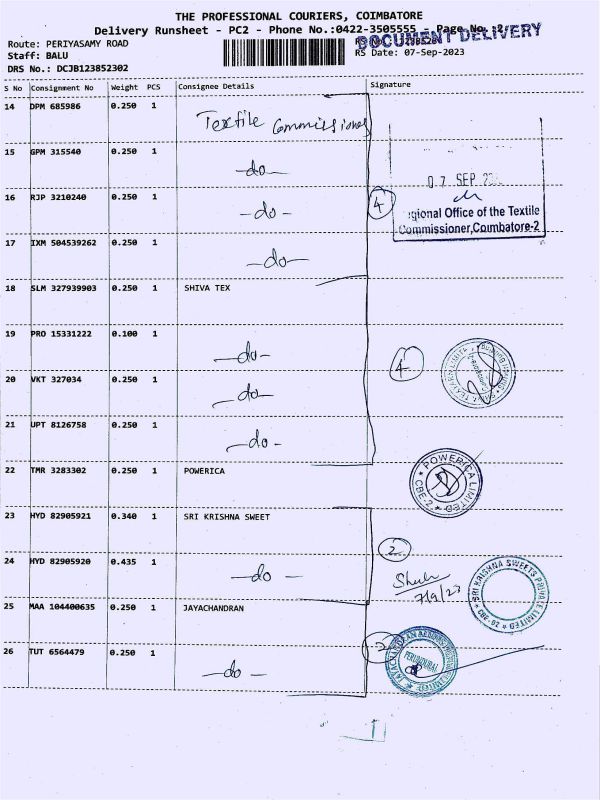 THE PROFESSIONAL COURIERS, COIMBATORE
Delivery Runsheet - PC2 - Phone No.:0422-3505555 - Page No.:2/
DOCUMENT DELIVERY
Route: PERIYASAMY ROAD
Staff: BALU
RS Date: 07-Sep-2023
DRS No.: DCJB123852302
S No Consignment No Weight PCS Consignee Details Signature
14 DPM 685986 0.250 1 Textile Commissioner
15 GPM 315540 0.250 1 -do-
07 SEP
16 RJP 3210240 0.250 1 -do- 4
gional Office of the Textile
Commissioner, Coimbatore-2
17 IXM 504539262 0.250 1 -do-
18 SLM 327939903 0.250 1 SHIVA TEX
19 PRO 15331222 0.100 1 -do-
4
20 VKT 327034 0.250 1 -do-
21 UPT 8126758 0.250 1 -do-
22 TMR 3283302 0.250 1 POWERICA
POWERICA LIMITED
CBE-2
23 HYD 82905921 0.340 1 SRI KRISHNA SWEET
2
24 HYD 82905920 0.435 1 -do-
7/9/23
SRI KRISHNA SWEETS PRIVATE LIMITED
CBE-02
25 MAA 104400635 0.250 1 JAYACHANDRAN
26 TUT 6564479 0.250 1 -do- 2
PERUNDURAI